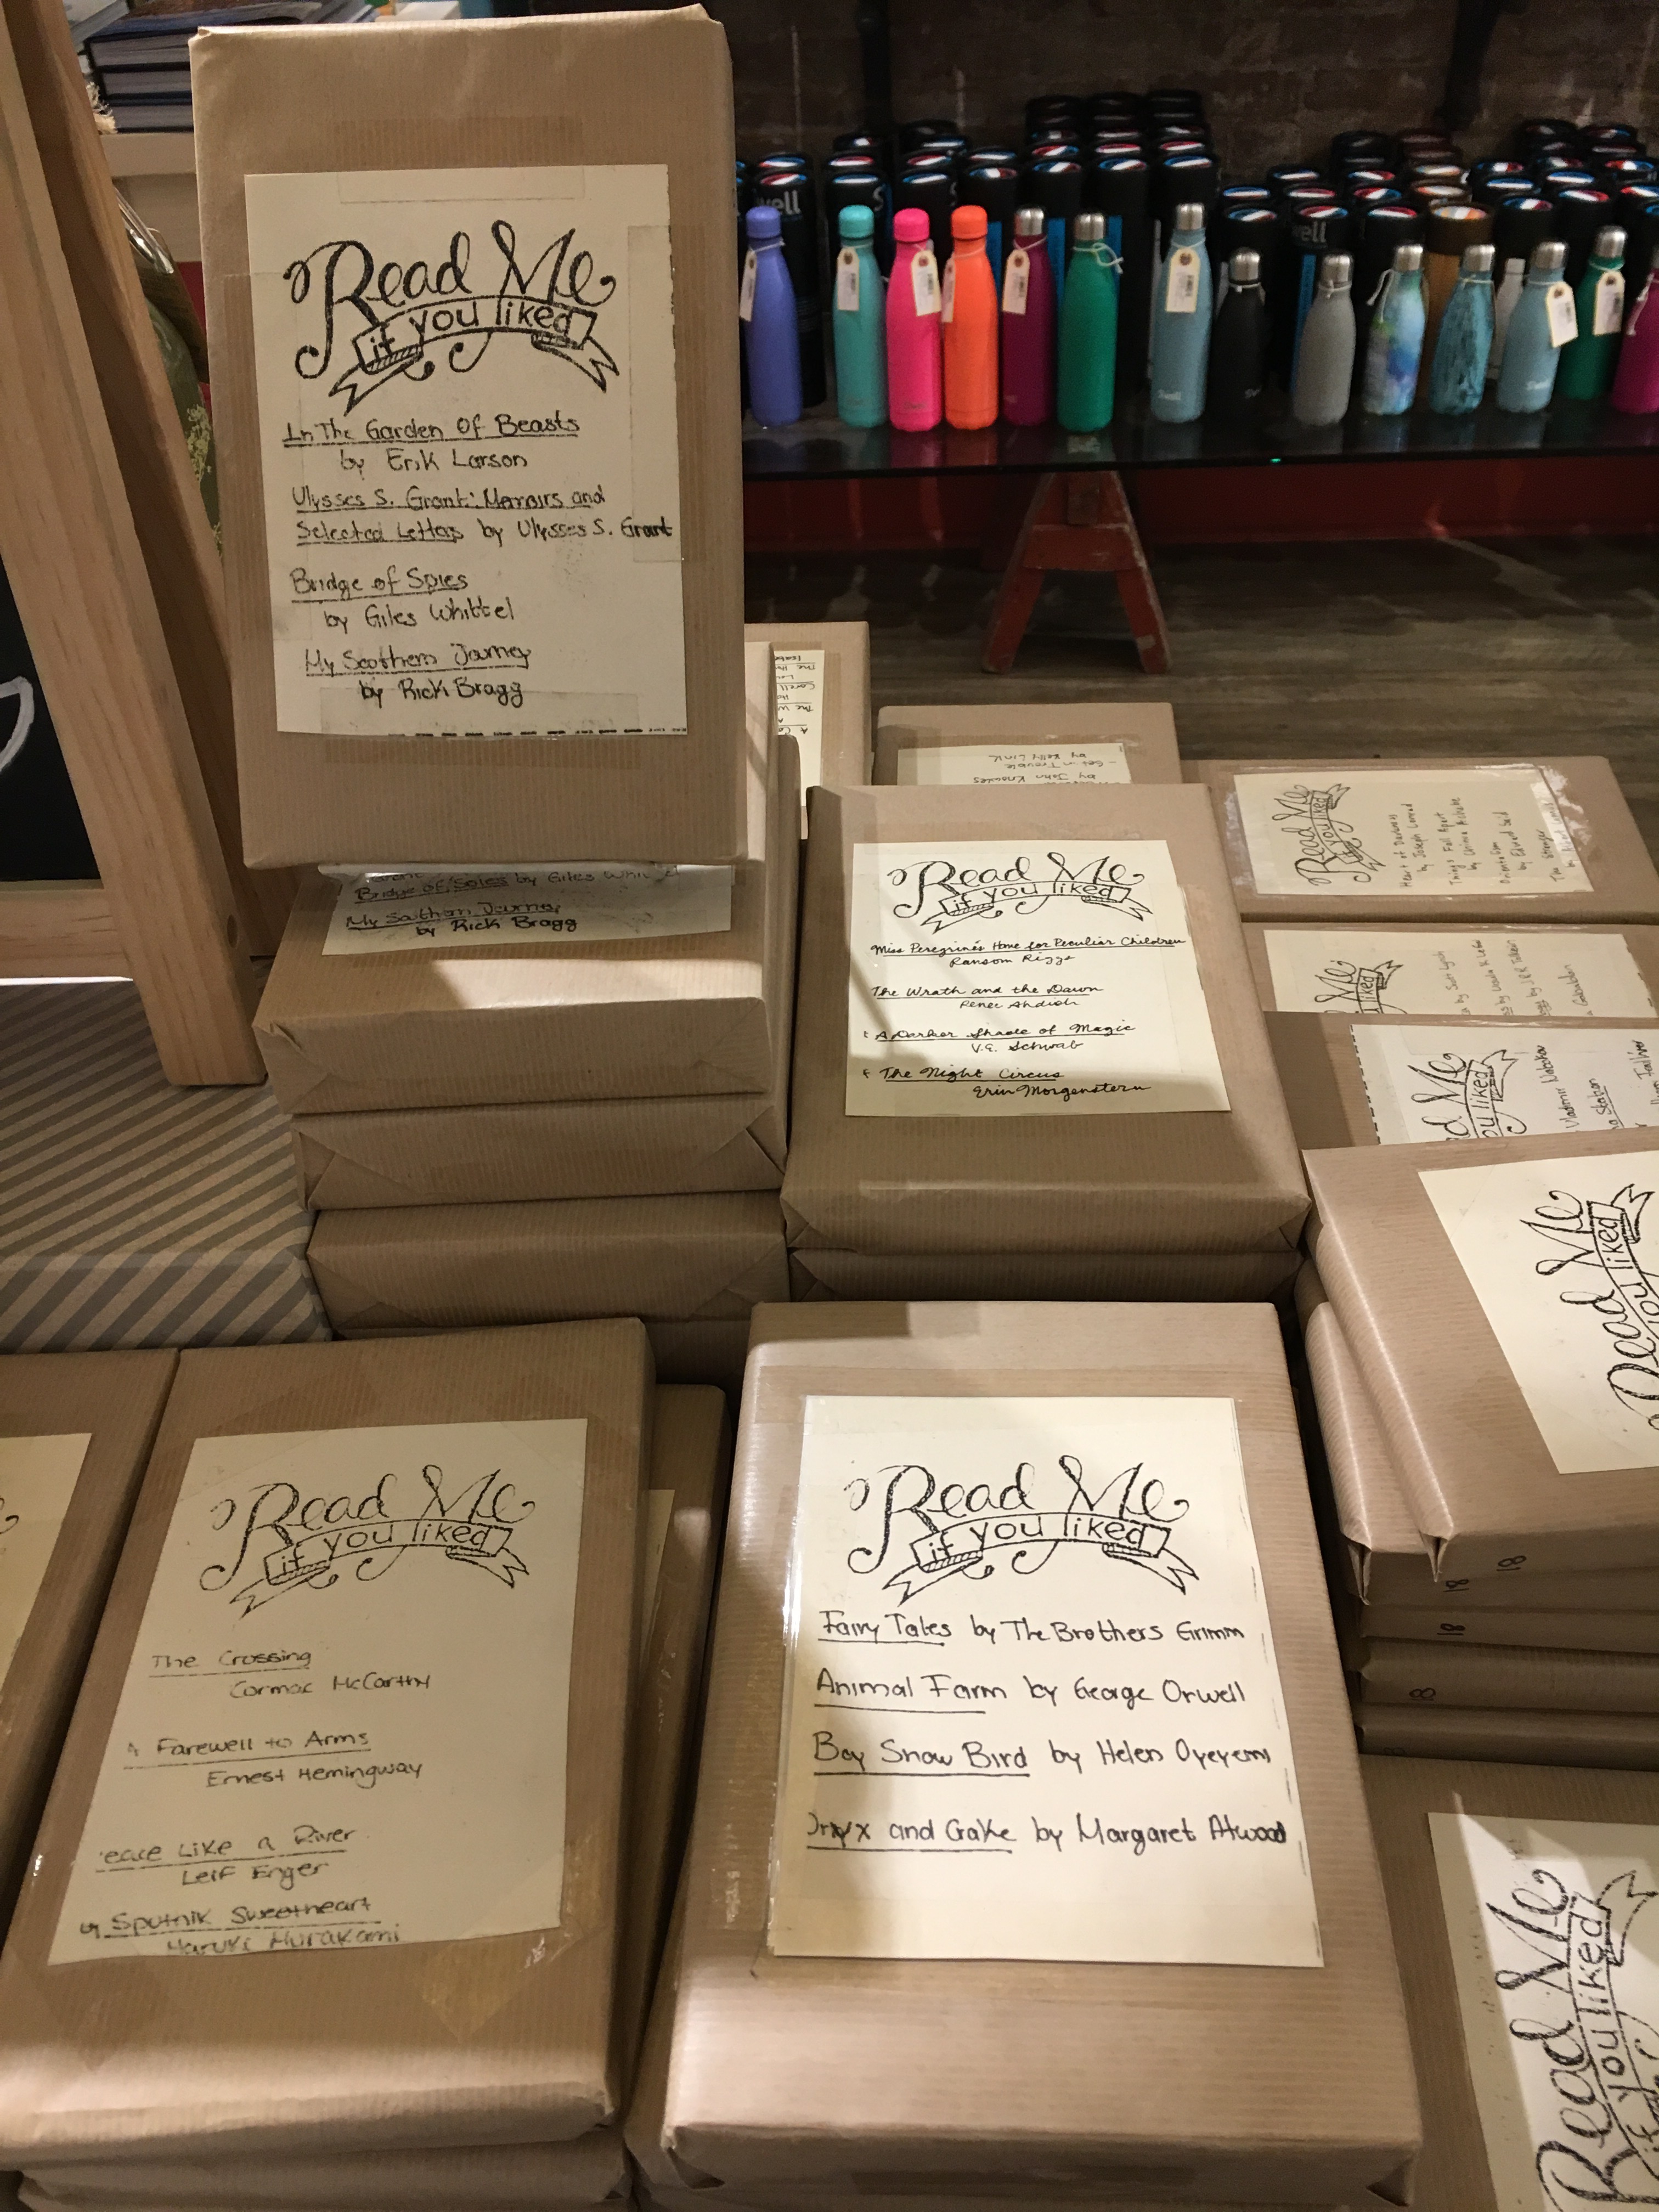 Read Me
if you liked
In The Garden Of Beasts
by Erik Larson
Ulysses S. Grant: Memoirs and
Selected Letters by Ulysses S. Grant
Bridge of Spies
by Giles Whittel
My Southern Journey
by Rick Bragg
Bridge of Spies by Giles
My Southern Journey
by Rick Bragg
well
well
Swell
by Kelly Link
Get in Trouble
by John Knowles
Read Me
if you liked
Miss Peregrine's Home for Peculiar Children
Ransom Riggs
The Wrath and the Dawn
Renee Ahdieh
A Darker Shade of Magic
V.E. Schwab
The Night Circus
Erin Morgenstern
Read Me
if you liked
Heart of Darkness
by Joseph Conrad
Things Fall Apart
by Chinua Achebe
Orientalism
by Edward Said
The Stranger
Me
liked
by Scott Lynch
by Ursula K Le
by J.R.R. Tolkien
Me
ou liked
Vladimir Nabokov
Station
Read Me
you liked
18
18
18
8
Read Me
if you liked
The Crossing
Cormac McCarthy
A Farewell to Arms
Ernest Hemingway
eace Like a River
Leif Enger
Sputnik Sweetheart
Haruki Murakami
Read Me
if you liked
Fairy Tales by The Brothers Grimm
Animal Farm by George Orwell
Boy Snow Bird by Helen Oyeyemi
Oryx and Crake by Margaret Atwood
Read Me
if you liked